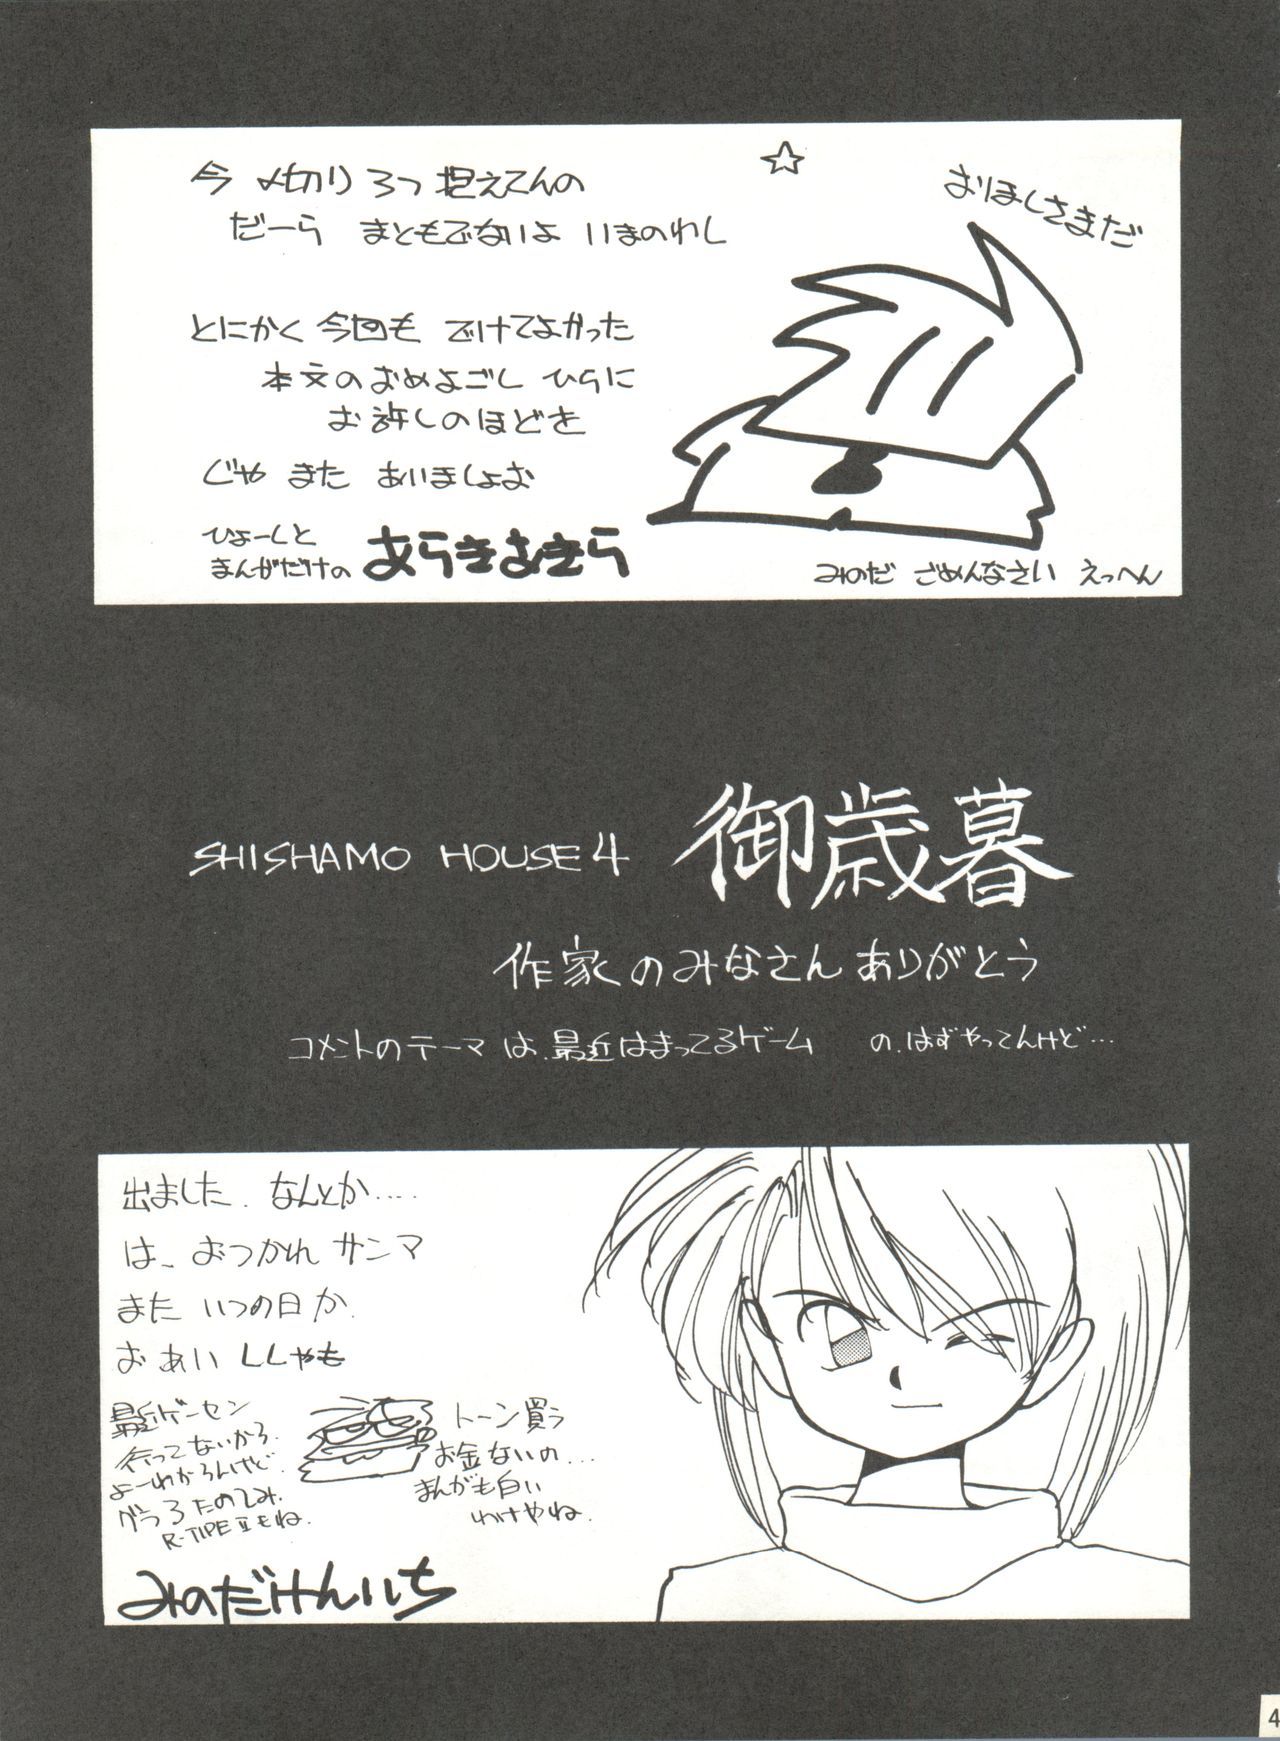 今 〆切り 3つ 抱えてんの
だーら まともでないよ いまのわし
とにかく 今回も でけてよかった
本文のおめよごし ひらに
お許しのほどを
じゃ また あいましょお
ひょーしと
まんがだけの あらきあきら
おほしさまだ
みのだ ごめんなさい えっへん
SHISHAMO HOUSE 4 御歳暮
作家のみなさん ありがとう
コメントのテーマは、最近はまってるゲーム の、はずやってんけど…
出ました、なんとか….
は、おつかれ サンマ
また いつの日か
おあい ししゃも
最近ゲーセン
行ってないから、
よーわからんけど
グラ3たのしみ.
R-TYPE IIもね.
トーン買う
お金ないの…
まんがも白い
わけやね.
みのだけんいち
4